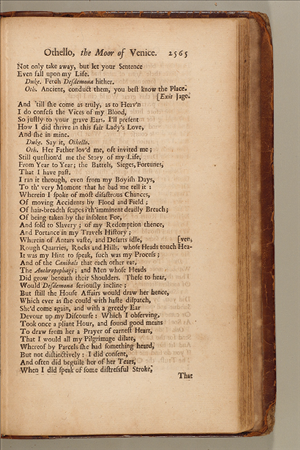 Othello, the Moor of Venice. 2565
Not only take away, but let your Sentence
Even fall upon my Life.
Duke. Fetch Desdemona hither.
Oth. Ancient, conduct them, you best know the Place.
[Exit Iago.
And 'till she come as truly, as to Heav'n
I do confess the Vices of my Blood,
So justly to your grave Ears, I'll present
How I did thrive in this fair Lady's Love,
And she in mine.
Duke. Say it, Othello.
Oth. Her Father lov'd me, oft invited me;
Still question'd me the Story of my Life,
From Year to Year; the Battels, Sieges, Fortunes,
That I have past.
I ran it through, even from my Boyish Days,
To th' very Moment that he bad me tell it:
Wherein I spoke of most disastrous Chances,
Of moving Accidents by Flood and Field;
Of hair-breadth scapes i'th'imminent deadly Breach;
Of being taken by the insolent Foe,
And sold to Slavery; of my Redemption thence,
And Portance in my Travels History;
Wherein of Antars vaste, and Desarts idle, [ven,
Rough Quarries, Rocks and Hills, whose Heads touch Hea-
It was my Hint to speak, such was my Process;
And of the Canibals that each other eat,
The Anthropophagi; and Men whose Heads
Did grow beneath their Shoulders. These to hear,
Would Desdemona seriously incline:
But still the House Affairs would draw her hence,
Which ever as she could with haste dispatch,
She'd come again, and with a greedy Ear
Devour up my Discourse: Which I observing,
Took once a pliant Hour, and found good means
To draw from her a Prayer of earnest Heart,
That I would all my Pilgrimage dilate,
Whereof by Parcels she had something heard,
But not distinctively: I did consent,
And often did beguile her of her Tears,
When I did speak of some distressful Stroke,
That